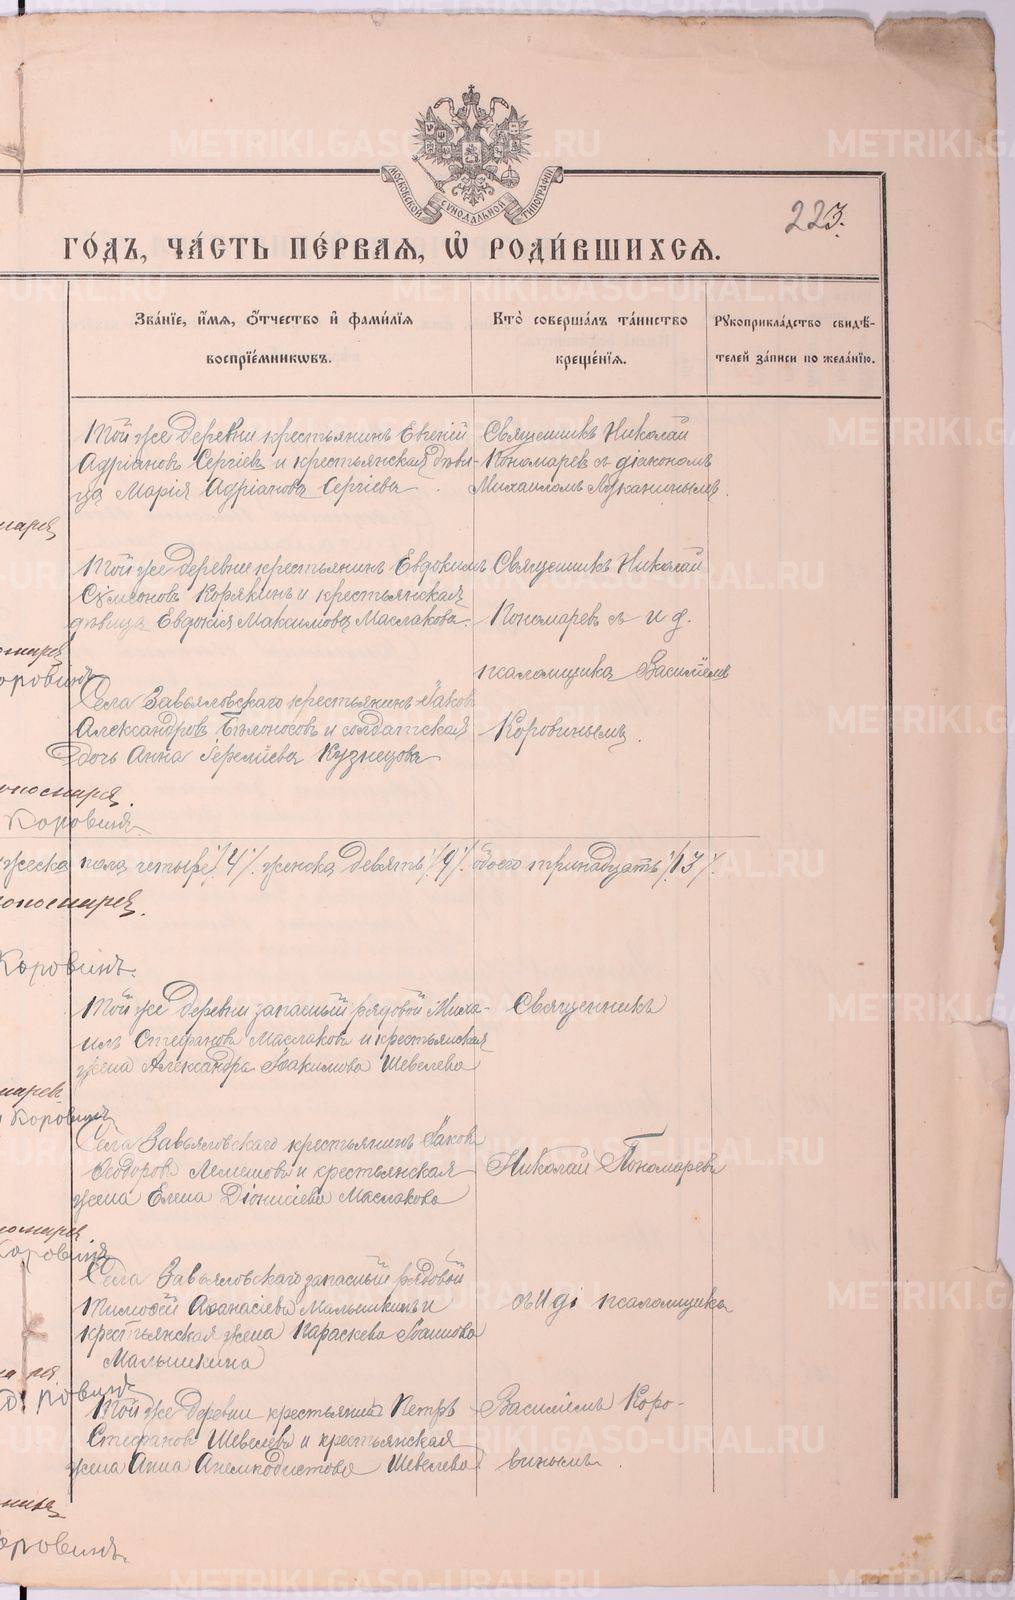 МОСКОВСКОЙ СѴНОДАЛЬНОЙ ТИПОГРАФІИ
223.
ГО́ДЪ, ЧА́СТЬ ПЕ́РВАѦ, Ѡ҆ РОДИ́ВШИХСѦ.
Зва́нїе, и҆́мѧ, ѻ҆́тчество и҆ фами́лїѧ
воспрїе́мникѡвъ.
Кто̀ соверша́лъ та́инство
креще́нїѧ.
Рꙋкоприкла́дство свидѣ́-
телей за́писи по жела́нїю.
Той же деревни крестьянинъ Евгеній
Адріановъ Сергіевъ и крестьянская дѣви-
ца Марія Адріанова Сергіева.
Священникъ Николай
Пономаревъ съ діакономъ
Михаиломъ Луканинымъ.
Той же деревни крестьянинъ Евдокимъ
Сѵмеоновъ Корякинъ и крестьянская
дѣвица Евдокія Максимова Маслакова.
Священникъ Николай
Пономаревъ съ и д.
псаломщика Василіемъ
Коровинымъ.
Села Завьяловскаго крестьянинъ Іаковъ
Александровъ Бѣлоносовъ и солдатская
дочь Анна Іереміева Кузнецова
Коровинъ
жеска пола четыре /4/. женска девять /9/. обоего тринадцать /13/.
Коровинъ.
Той же деревни запасный рядовой Миха-
илъ Стефановъ Маслаковъ и крестьянская
жена Александра Іоакимова Шевелева
Священникъ
Села Завьяловскаго крестьянинъ Іаковъ
Ѳеодоровъ Лемешовъ и крестьянская
жена Елена Діонисіева Маслакова
Николай Пономаревъ
Села Завьяловскаго запасный рядовой
Тимоѳей Аѳанасіевъ Малышкинъ и
крестьянская жена Параскева Іоаннова
Малышкина
съ и д псаломщика
Той же деревни крестьянинъ Петръ
Стефановъ Шевелевъ и крестьянская
жена Анна Анемподистова Шевелева
Василіемъ Коро-
винымъ.
Коровинъ.
METRIKI.GASO-URAL.RU